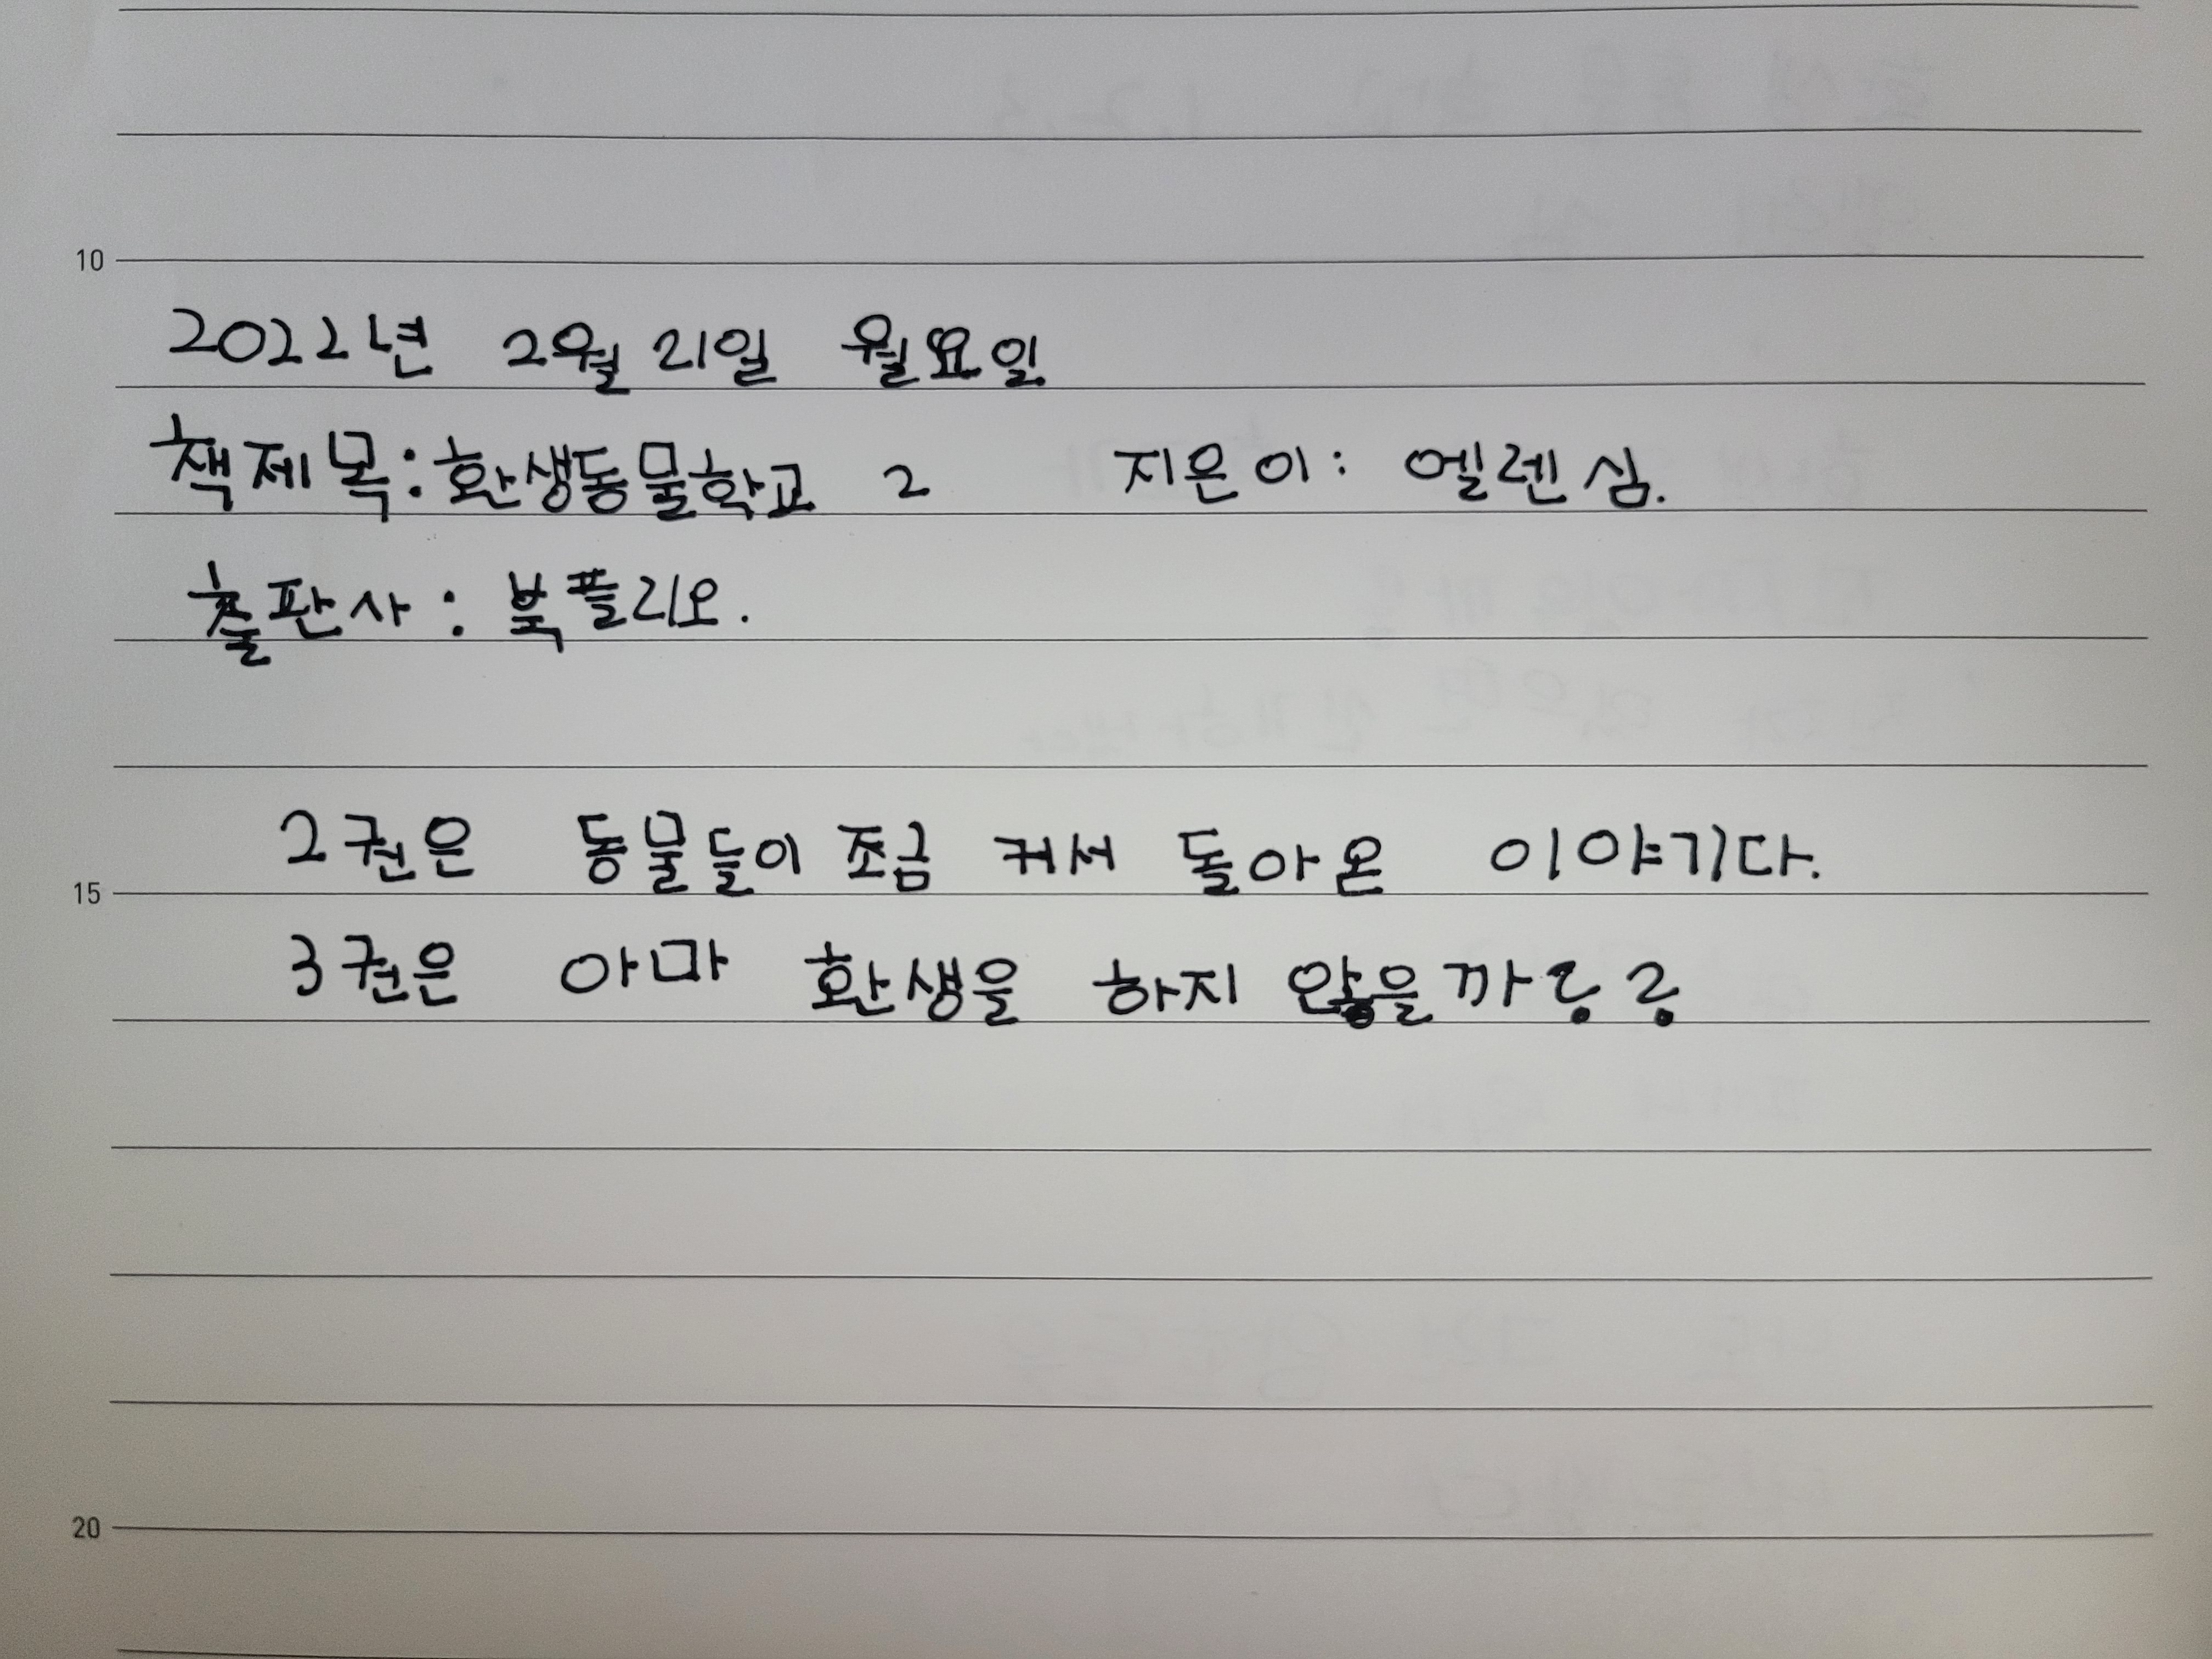 10
2022년 2월 21일 월요일
책제목:환생동물학교 2 지은이: 엘렌심.
출판사: 북플리오.
2권은 동물들이 조금 커서 돌아온 이야기다.
15
3권은 아마 환생을 하지 않을까??
20